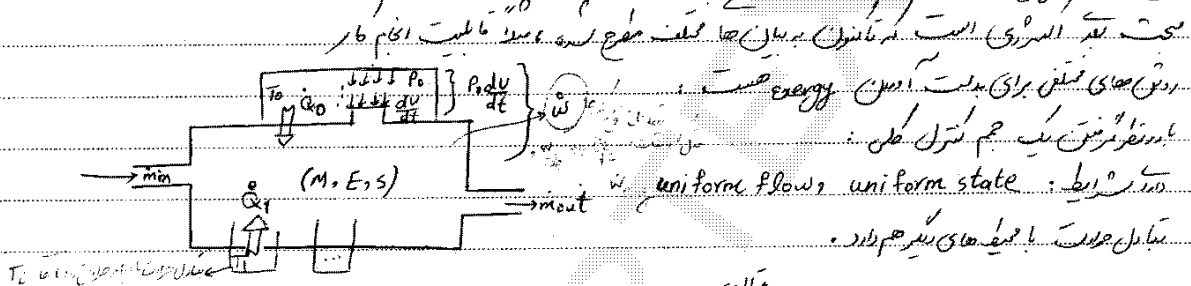 صحبت بعدی اکسرژی است که تاکنون به بیان‌ها مختلف مطرح شده، مثلاً قابلیت انجام کار
روش‌های مختلفی برای بدست آمدن exergy هست :
با درنظر گرفتن یک حجم کنترل کلی :
شرایط : uniform flow, uniform state
تبادل حرارت با محیط‌های دیگر هم دارد.
T₀ Q̇₀ P₀ dv/dt } P₀ dv/dt } Ẇ
ṁin (M, E, S) ṁout
Q̇₁
T₁ ...